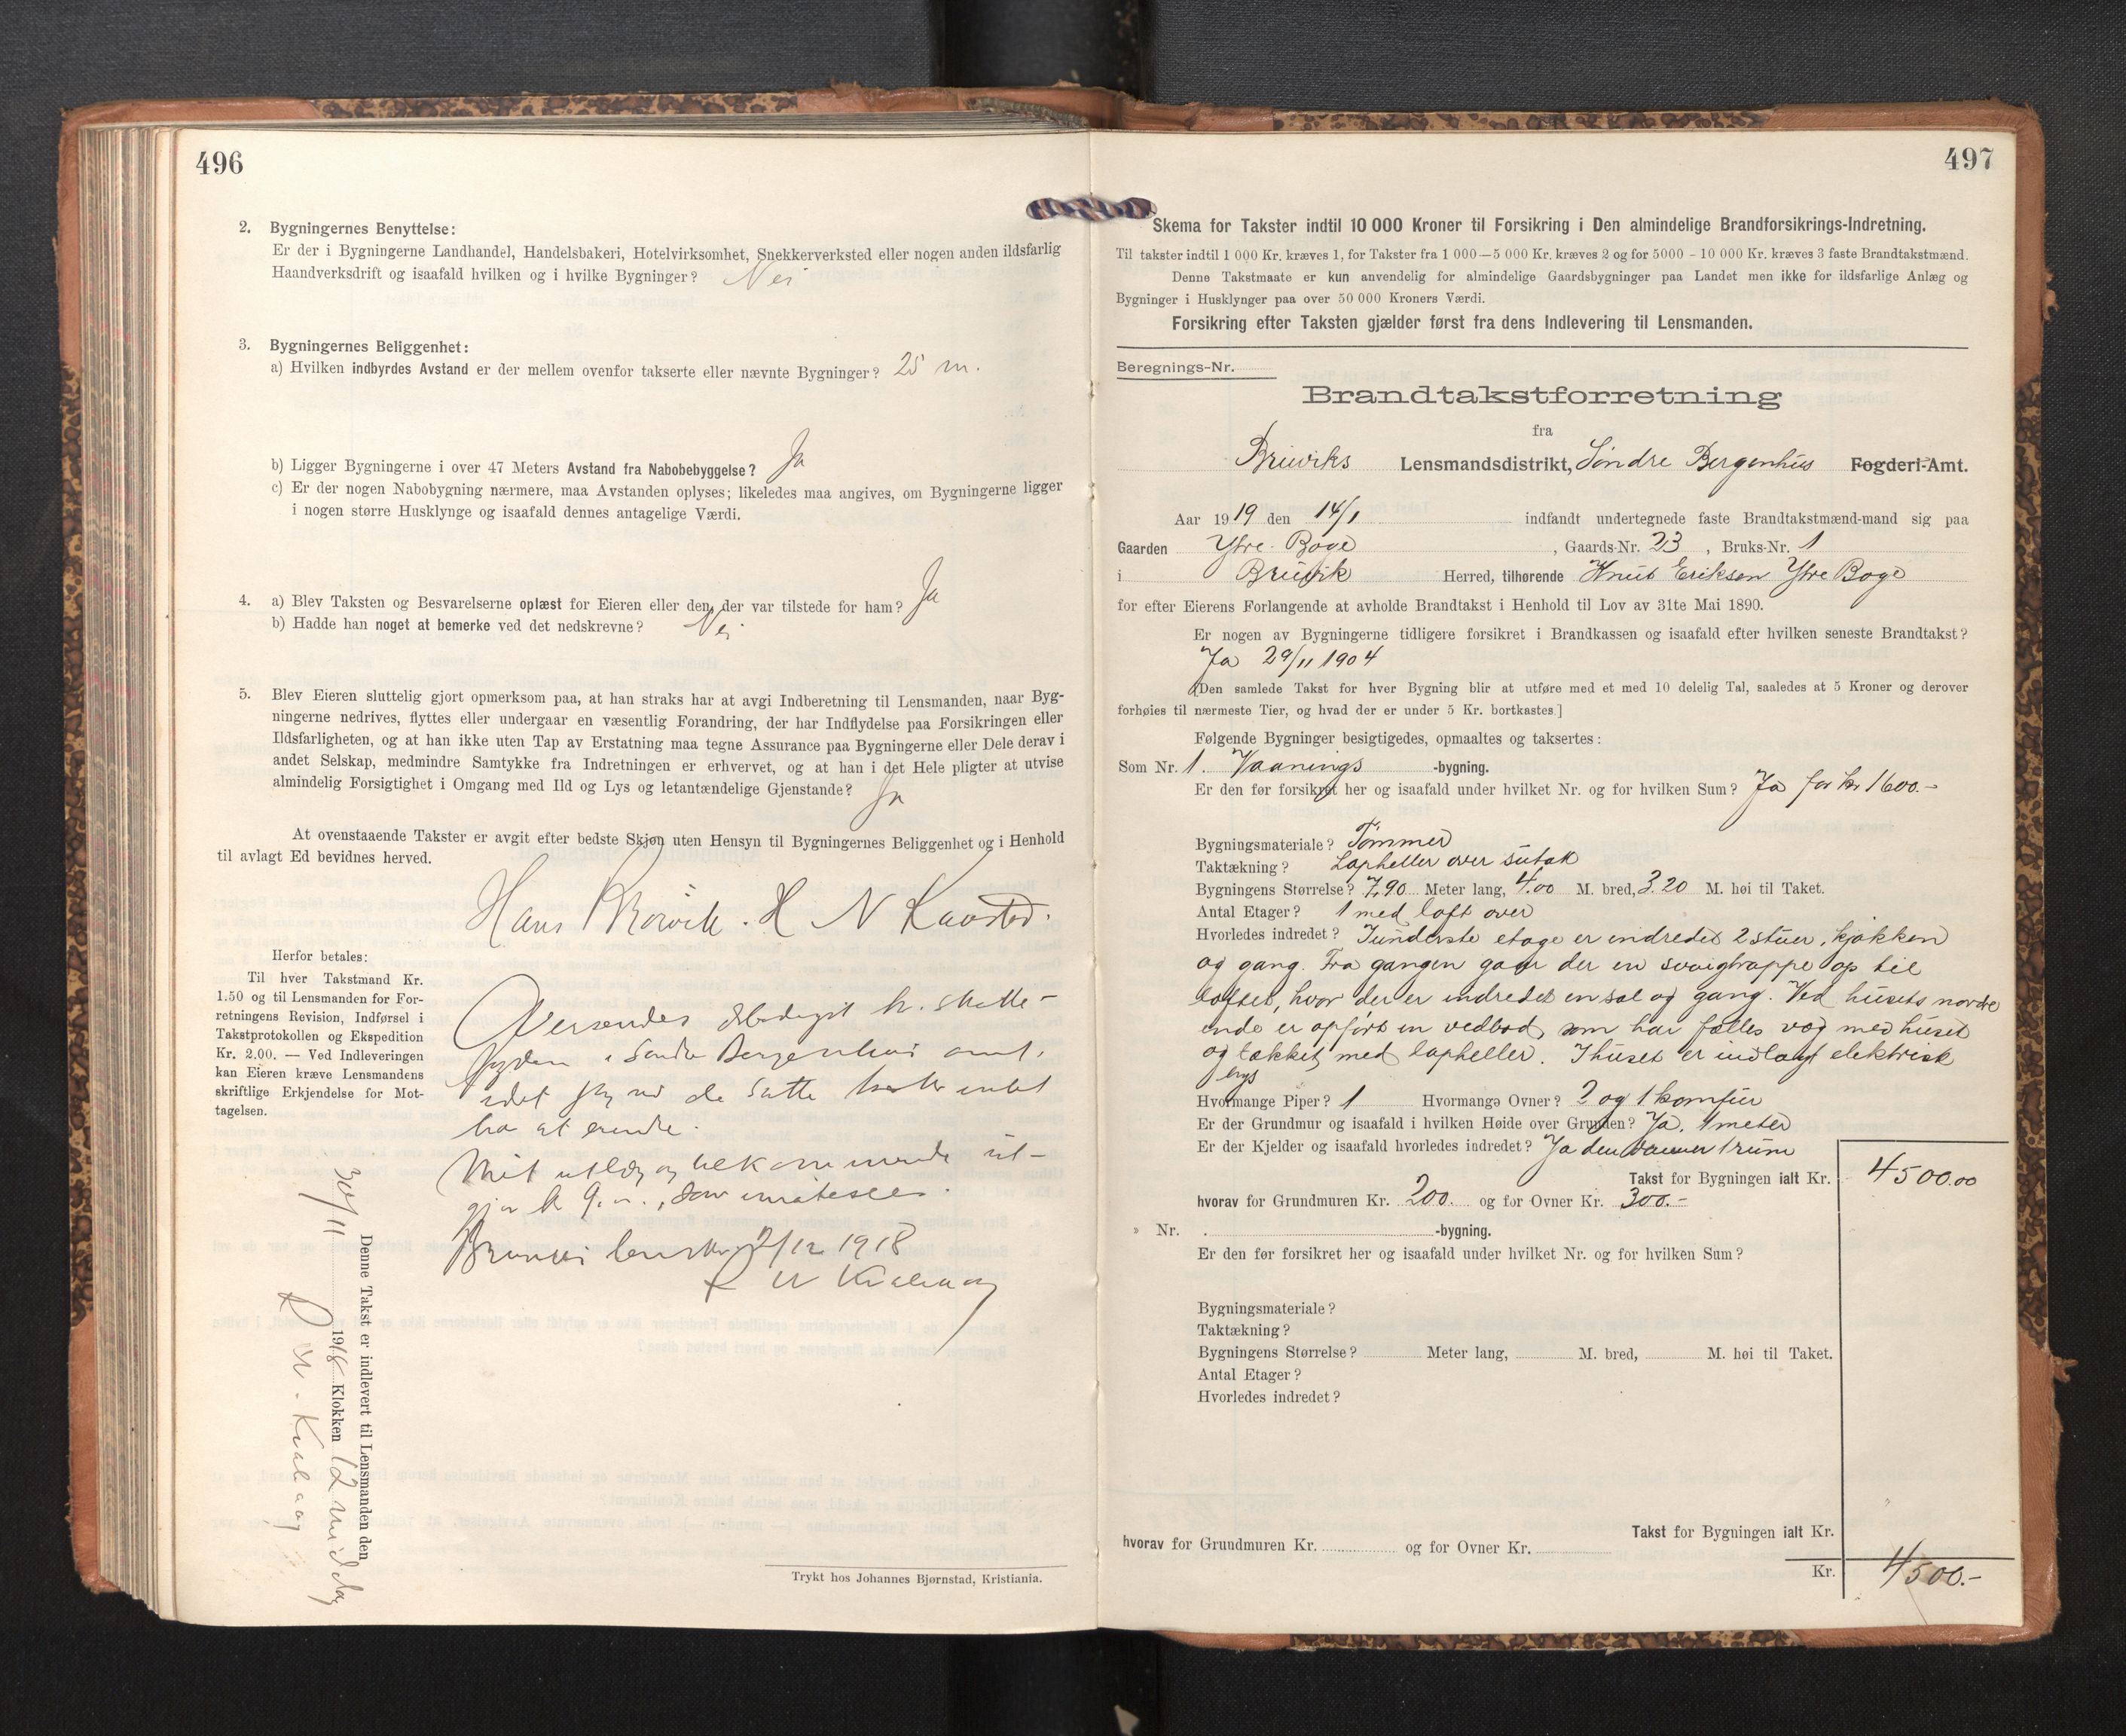 496
2. Bygningernes Benyttelse:
Er der i Bygningerne Landhandel, Handelsbakeri, Hotelvirksomhet, Snekkerverksted eller nogen anden ildsfarlig
Haandverksdrift og isaafald hvilken og i hvilke Bygninger? Nei
3. Bygningernes Beliggenhet:
a) Hvilken indbyrdes Avstand er der mellem ovenfor takserte eller nævnte Bygninger? 25 m.
b) Ligger Bygningerne i over 47 Meters Avstand fra Nabobebyggelse? Ja
c) Er der nogen Nabobygning nærmere, maa Avstanden oplyses; likeledes maa angives, om Bygningerne ligger
i nogen større Husklynge og isaafald dennes antagelige Værdi.
4. a) Blev Taksten og Besvarelserne oplæst for Eieren eller den, der var tilstede for ham? Ja
b) Hadde han noget at bemerke ved det nedskrevne? Nei
5. Blev Eieren sluttelig gjort opmerksom paa, at han straks har at avgi Indberetning til Lensmanden, naar Byg-
ningerne nedrives, flyttes eller undergaar en væsentlig Forandring, der har Indflydelse paa Forsikringen eller
Ildsfarligheten, og at han ikke uten Tap av Erstatning maa tegne Assurance paa Bygningerne eller Dele derav i
andet Selskap, medmindre Samtykke fra Indretningen er erhvervet, og at han i det Hele pligter at utvise
almindelig Forsigtighet i Omgang med Ild og Lys og letantændelige Gjenstande? Ja
At ovenstaaende Takster er avgit efter bedste Skjøn uten Hensyn til Bygningernes Beliggenhet og i Henhold
til avlagt Ed bevidnes herved.
Hans H N
Herfor betales:
Til hver Takstmand Kr.
1.50 og til Lensmanden for For-
retningens Revision, Indførsel i
Takstprotokollen og Ekspedition
Kr. 2.00. — Ved Indleveringen
kan Eieren kræve Lensmandens
skriftlige Erkjendelse for Mot-
tagelsen.
Versendes hr. skatte-
fogden i Søndre Bergenhus amt,
idet jeg ved de satte intet
har at erindre.
Mit utlæg og tilkommende ut-
gjør kr 9. , som
2/12 1918
Denne Takst er indlevert til Lensmanden den
30/11 1918 Klokken 12 middag
497
Skema for Takster indtil 10 000 Kroner til Forsikring i Den almindelige Brandforsikrings-Indretning.
Til takster indtil 1 000 Kr. kræves 1, for Takster fra 1 000—5 000 Kr. kræves 2 og for 5000 - 10 000 Kr. kræves 3 faste Brandtakstmænd.
Denne Takstmaate er kun anvendelig for almindelige Gaardsbygninger paa Landet men ikke for ildsfarlige Anlæg og
Bygninger i Husklynger paa over 50 000 Kroners Værdi.
Forsikring efter Taksten gjælder først fra dens Indlevering til Lensmanden.
Beregnings-Nr.
Brandtakstforretning
fra
Bruviks Lensmandsdistrikt, Søndre Bergenhus Fogderi-Amt.
Aar 1919 den 14/1 indfandt undertegnede faste Brandtakstmænd-mand sig paa
Gaarden Ytre Boge, Gaards-Nr. 23, Bruks-Nr. 1
i Bruvik Herred, tilhørende Knut Eriksen Ytre Boge
for efter Eierens Forlangende at avholde Brandtakst i Henhold til Lov av 31te Mai 1890.
Er nogen av Bygningerne tidligere forsikret i Brandkassen og isaafald efter hvilken seneste Brandtakst?
Ja 29/11 1904
[Den samlede Takst for hver Bygning blir at utføre med et med 10 delelig Tal, saaledes at 5 Kroner og derover
forhøies til nærmeste Tier, og hvad der er under 5 Kr. bortkastes.]
Følgende Bygninger besigtigedes, opmaaltes og taksertes:
Som Nr. 1. Vaanings -bygning.
Er den før forsikret her og isaafald under hvilket Nr. og for hvilken Sum? Ja for kr 1600.-
Bygningsmateriale? Tømmer
Taktækning? Lapheller over sutak
Bygningens Størrelse? 7,90 Meter lang, 4.00 M. bred, 3.20 M. høi til Taket.
Antal Etager? 1 med loft over
Hvorledes indredet? I underste etage er indredet 2 stuer, kjøkken
og gang. Fra gangen gaar der en svingtrappe op til
loftet, hvor der er indredet en sal og gang. Ved husets nordre
ende er opført en vedbod, som har fælles væg med huset
og tækket med lapheller. I huset er indlagt elektrisk
lys
Hvormange Piper? 1 Hvormange Ovner? 2 og 1 komfur
Er der Grundmur og isaafald i hvilken Høide over Grunden? Ja, 1 meter
Er der Kjelder og isaafald hvorledes indredet? Ja den danner 1 rum
Takst for Bygningen ialt Kr. 4500.00
hvorav for Grundmuren Kr. 200. og for Ovner Kr. 300.-
» Nr. -bygning.
Er den før forsikret her og isaafald under hvilket Nr. og for hvilken Sum?
Bygningsmateriale?
Taktækning?
Bygningens Størrelse? Meter lang, M. bred, M. høi til Taket.
Antal Etager?
Hvorledes indredet?
Takst for Bygningen ialt Kr.
hvorav for Grundmuren Kr. og for Ovner Kr.
Kr. 4500.-
Trykt hos Johannes Bjørnstad, Kristiania.